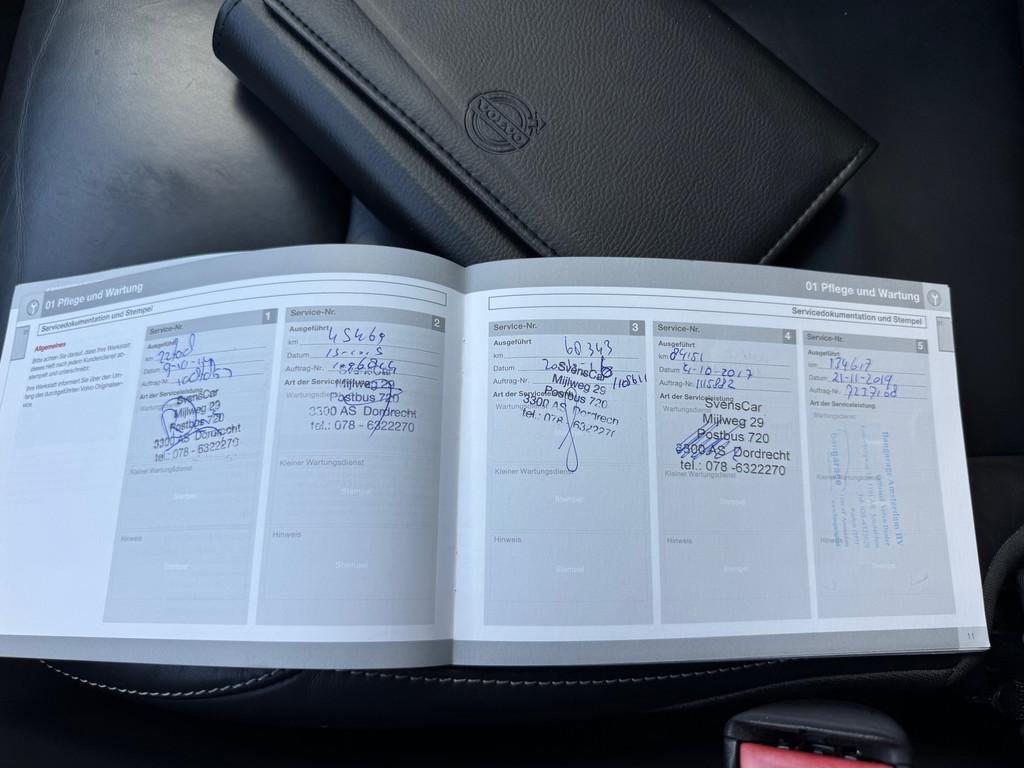 VOLVO
01 Pflege und Wartung
Servicedokumentation und Stempel
Allgemeines
Bitte achten Sie darauf, dass Ihre Werkstatt
dieses Heft nach jedem Kundendienst ab-
stempelt und unterschreibt.
Ihre Werkstatt informiert Sie über den Um-
fang des durchgeführten Volvo Originalser-
vice.
Service-Nr. 1
Ausgeführt
km
Datum
Auftrag-Nr.
Art der Serviceleistung
SvensCar
Mijlweg 29
Postbus 720
3300 AS Dordrecht
tel.: 078 - 6322270
Kleiner Wartungsdienst
Stempel
Hinweis
Stempel
Service-Nr. 2
Ausgeführt
km 45469
Datum
Auftrag-Nr.
Art der Serviceleistung
SvensCar
Mijlweg 29
Postbus 720
3300 AS Dordrecht
tel.: 078 - 6322270
Kleiner Wartungsdienst
Stempel
Hinweis
Stempel
01 Pflege und Wartung
Servicedokumentation und Stempel
Service-Nr. 3
Ausgeführt
km 60343
Datum
Auftrag-Nr.
Art der Serviceleistung
SvensCar
Mijlweg 29
Postbus 720
3300 AS Dordrecht
tel.: 078 - 6322270
Kleiner Wartungsdienst
Stempel
Hinweis
Stempel
Service-Nr. 4
Ausgeführt
km 84151
Datum 4-10-2017
Auftrag-Nr. 1115882
Art der Serviceleistung
SvensCar
Wartungsdienst
Mijlweg 29
Postbus 720
3300 AS Dordrecht
tel.: 078 -6322270
Kleiner Wartungsdienst
Stempel
Hinweis
Stempel
Service-Nr. 5
Ausgeführt
km 134617
Datum 21-11-2019
Auftrag-Nr. 7237168
Art der Serviceleistung
Wartungsdienst
Bangarage Amsterdam BV
Hinweis
Stempel
11